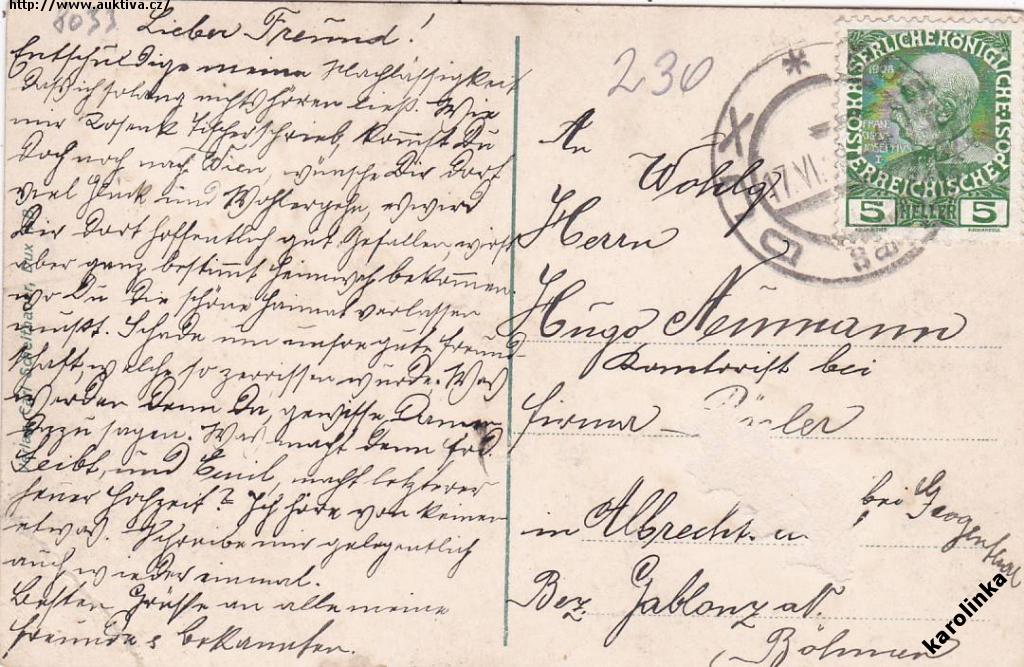 http://www.auktiva.cz/
8033
Lieber Freund!
Entschuldige meine Nachlässigkeit
daß ich solang nichts hören ließ. Wie
mir Tischer schrieb, kommst Du
doch noch nach Wien, wünsche Dir dort
viel Glück und Wohlergehn, es wird
Dir dort hoffentlich gut gefallen, wirst
aber ganz bestimmt Heimweh bekommen
wo Du die schöne Heimat verlassen
mußt. Schade um unsre gute Freund-
schaft, welche so zerrissen wurde. Was
werden denn Da, gewisse Damen
dazu sagen. Was macht denn Frl.
und Emil, macht letzterer
Hochzeit? Ich höre von keinen
etwas. Schreibe mir gelegentlich
auch wieder einmal.
Besten Grüsse an alle meine
Freunde & bekannten.
230
DUX
17 VI
KAISERLICHE KÖNIGLICHE ÖSTERREICHISCHE POST
1908
FRANCISCVS JOSEPHVS I
5 HELLER 5
An
Wohlg.
Herrn
Hugo Neumann
Kontorist bei
Firma
in Albrecht
bei Georgenthal
Bez. Gablonz a/N.
Böhmen
karolinka